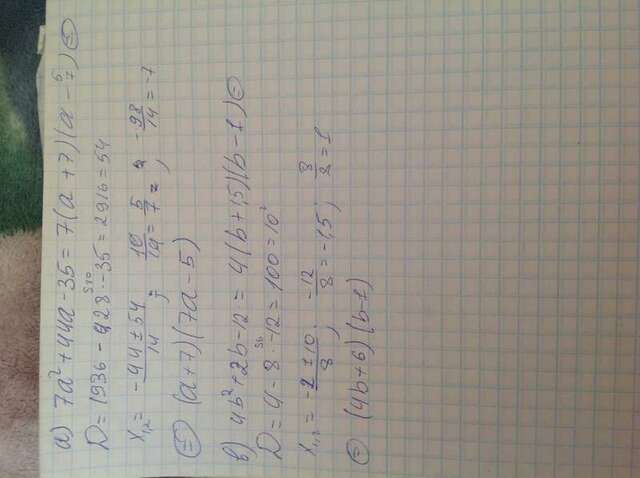 а) 7a² + 44a - 35 = 7(a + 7)(a - 5/7) ⊜
D = 1936 - 428 · -35 = 2916 = 54
x₁,₂ = -44 ± 54 / 14 ; 10/14 = 5/7 = ; -98/14 = -7
⊜ (a + 7)(7a - 5)
в) 4b² + 2b - 12 = 4(b + 1,5)(b - 1) ⊜
D = 4 - 8 · -12 = 100 = 10²
x₁,₂ = -2 ± 10 / 8 ; -12/8 = -1,5 ; 8/8 = 1
⊜ (4b + 6)(b - 1)